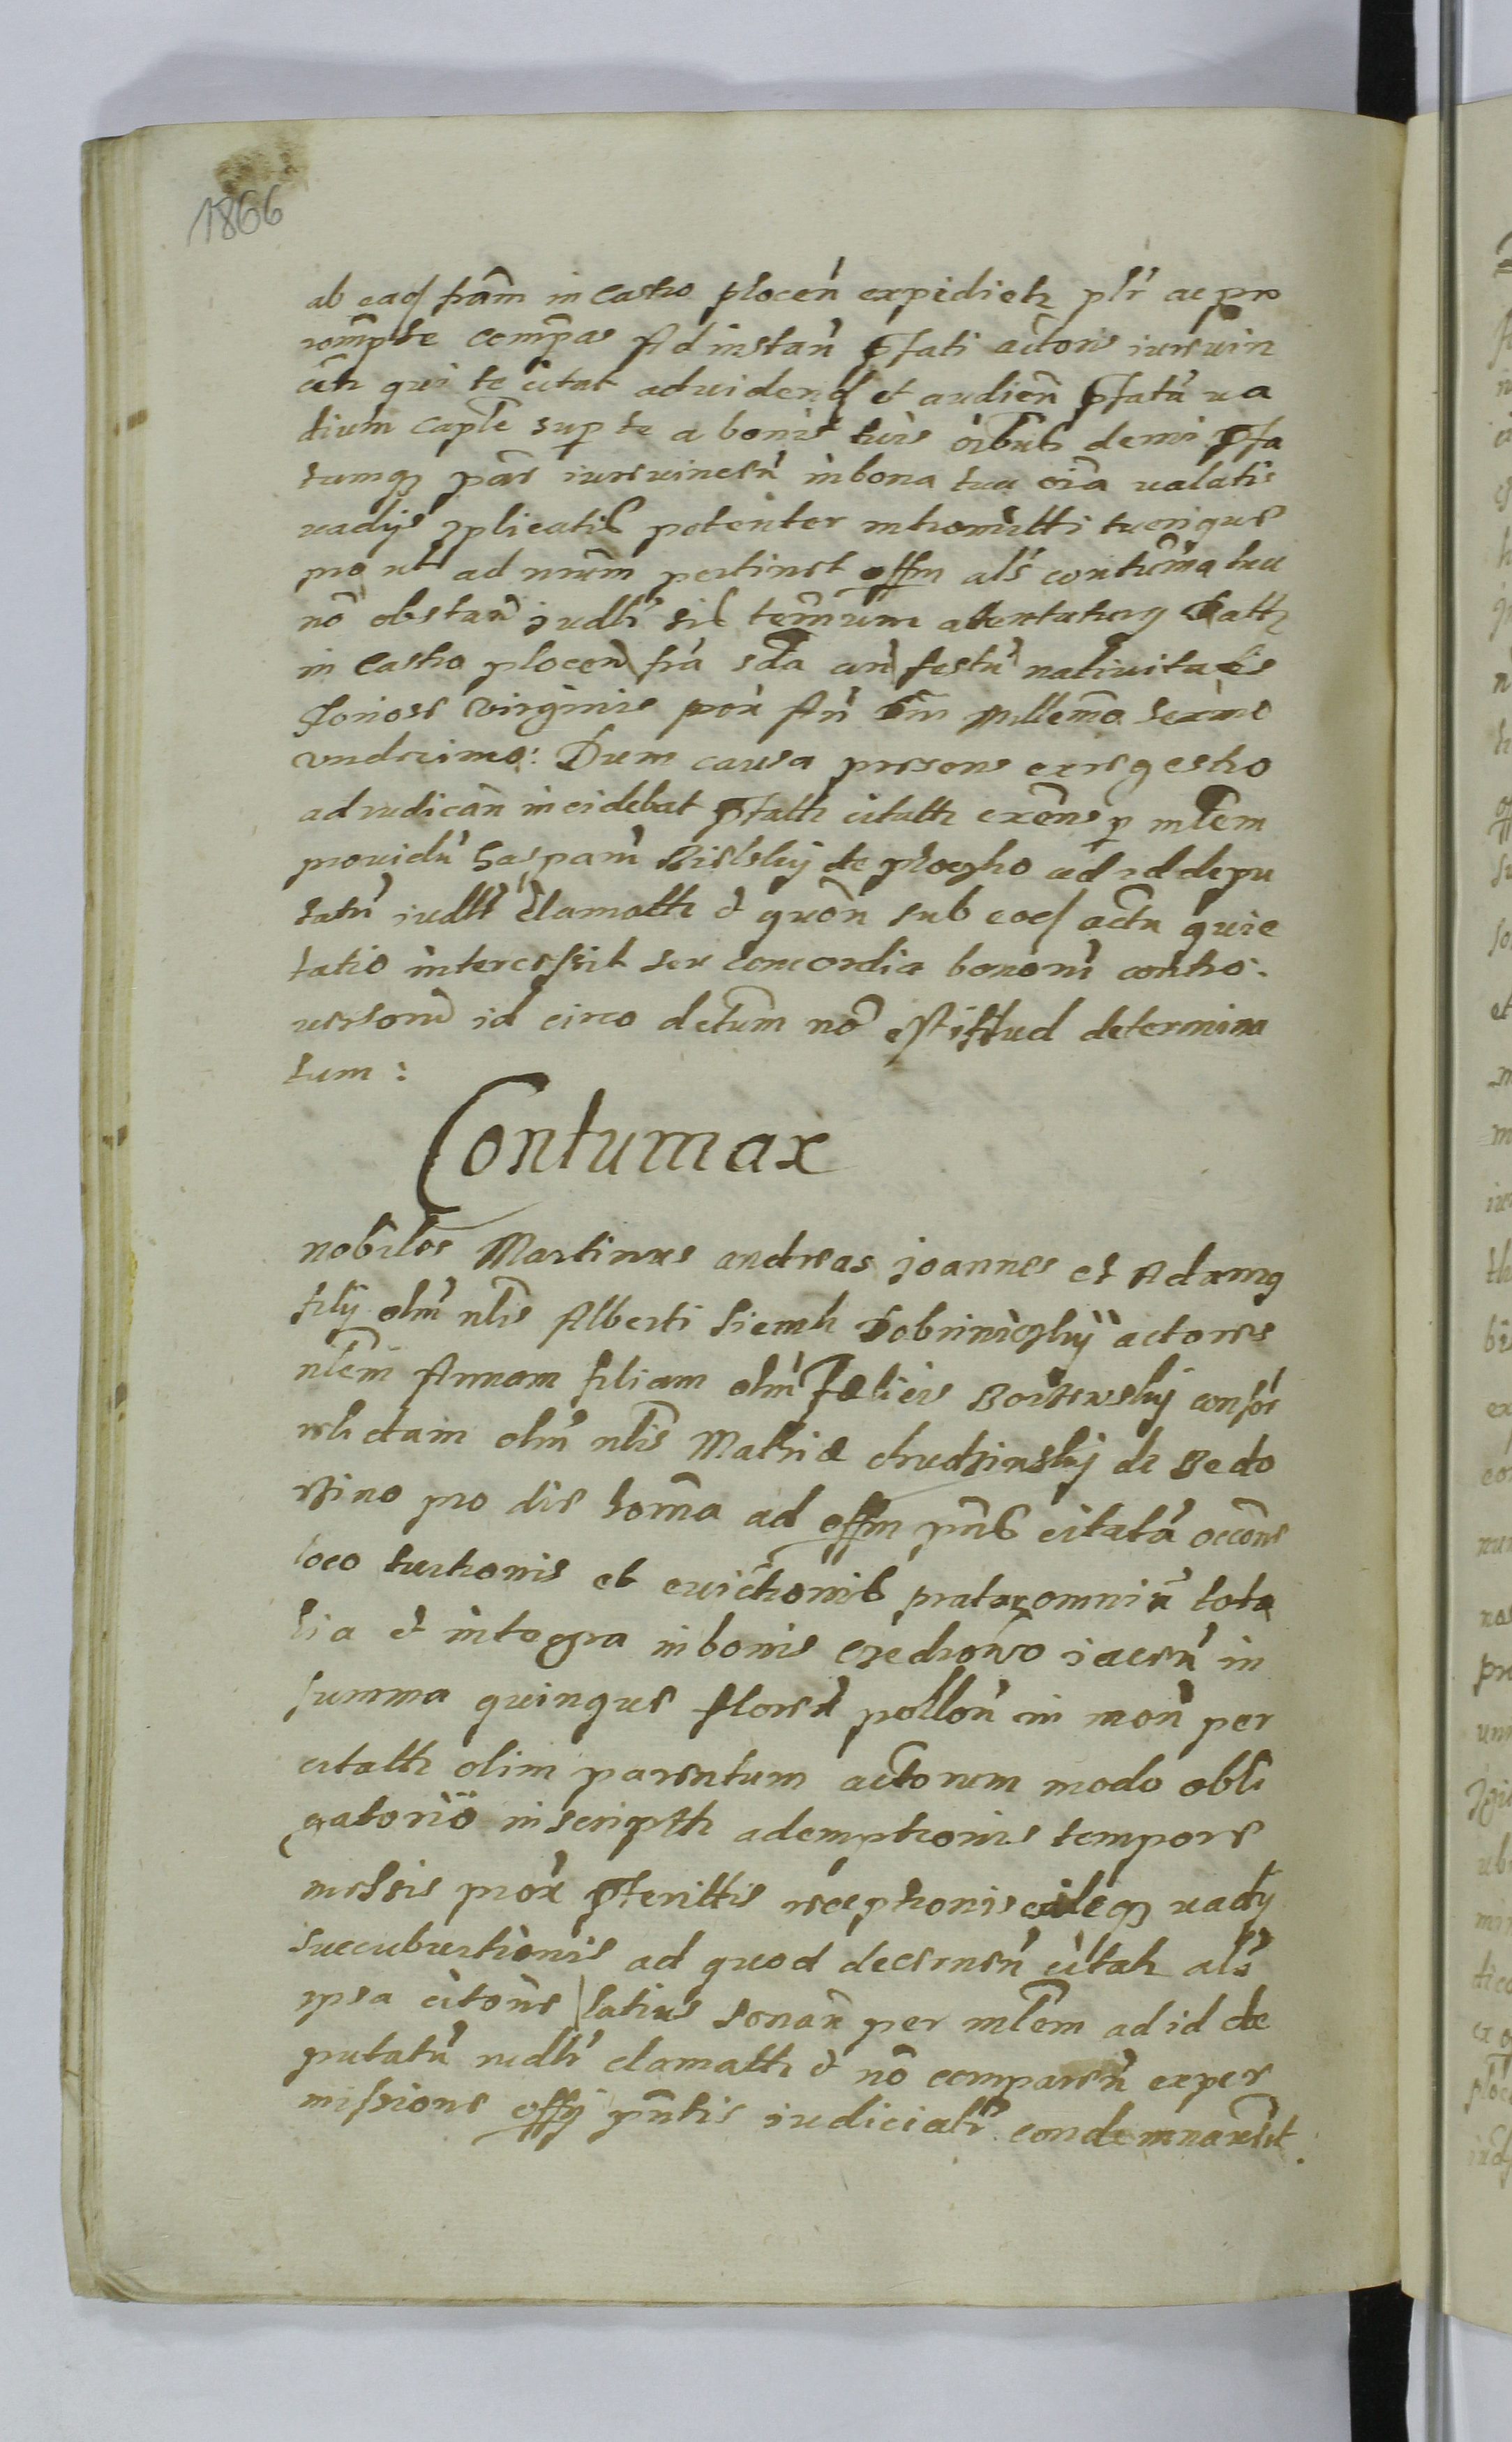 1866
ab eaq fram in Castro plocen̄ expidietr plr̄ ac pro
rompte compas Ad instan̄ p̄fati actoris iurevin
cēti qui te citat advidend et audien̄ p̄fatū va
dium caple sup te a bonis tuis oibus demi p̄fa
tumq par iurevincen̄ in bona tua oīa valatis
vadijs iplicatis potenter intromitti tuerique
pro ut ad nr̄um pertinet offm als contuma tua
nō obstan̄ judlr sil terminum attentaturq Datt
in Castro plocen̄ fra sda an̄ festū nativitatis
gloriose virginis prox An̄ Dni Millemo sexmo
undecimo: Dum causa presens ex regestro
ad iudican̄ incidebat p̄fatti citatti exens p mlem
providū Gasparū Bielskij de plocko ad id depu
tatū iudlr clamatti et quōn sub eod actu quie
tatio intercessit seu concordia bonorū contro:
versorū id circo decretum nō est istud determina
tum:
Contumax
nobiles Martinus andreas joannes et Adamq
filij olim nlis Alberti Siemk Dobrinickij actores
nlem Annam filiam olim Felicis Borzewskij consor
relictam olim nlis Mathiæ chudzinskij de Bedo
rzino pro die hoīma ad offm pn̄s citatā occōne
loco tuitionis et evictionis pratar omniū tota
lia et integra in bonis iacen̄ in
summa quinque floren̄ pollon̄ in mon̄ per
citatti olim parentum actorum modo obli
gatorio inscriptti ademptionis tempore
messis prox p̄terittis receptionis vadij
succubuitionis ad quod decernen̄ citatr als
ipsa citōne latius sonan̄ per mlem ad id de
putatū iudlr clamatti et nō comparen̄ ex per
missione offij pn̄tis iudicialr condemnarūt.